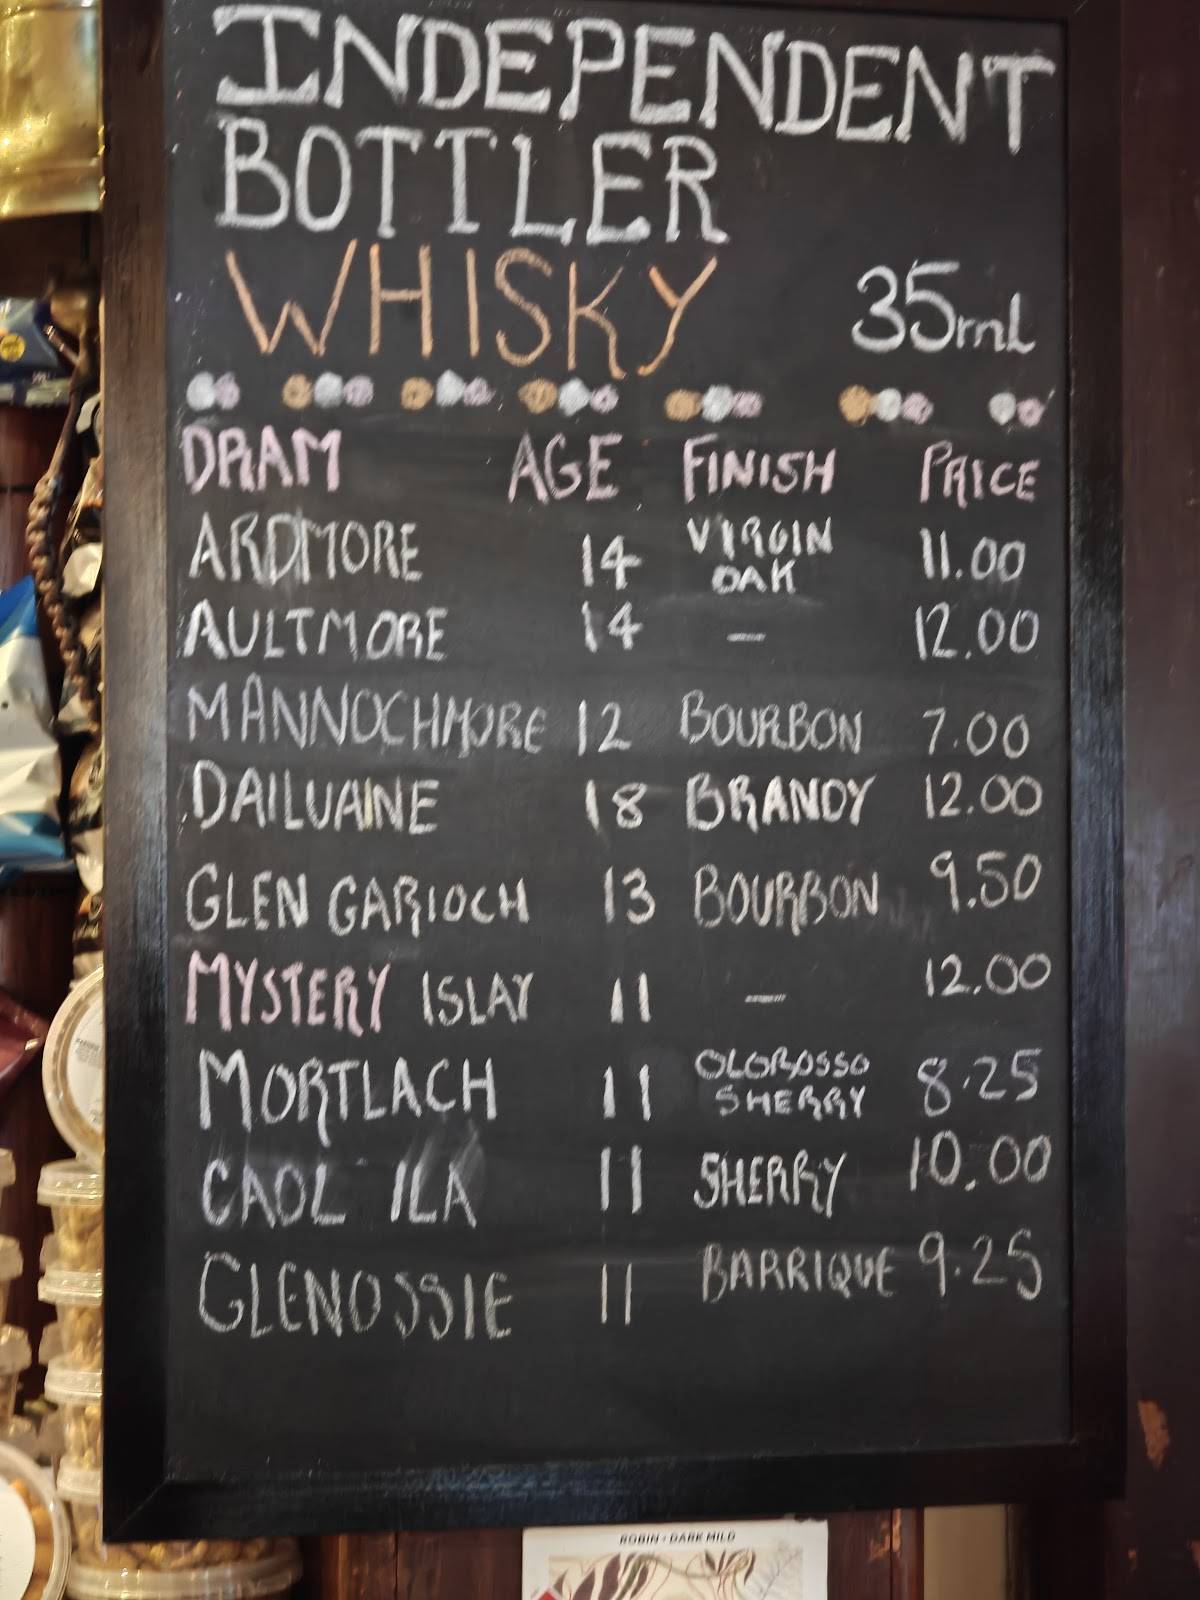 INDEPENDENT
BOTTLER
WHISKY 35mL
DRAM AGE FINISH PRICE
ARDMORE 14 VIRGIN OAK 11.00
AULTMORE 14 — 12.00
MANNOCHMORE 12 BOURBON 7.00
DAILUAINE 18 BRANDY 12.00
GLEN GARIOCH 13 BOURBON 9.50
MYSTERY ISLAY 11 — 12.00
MORTLACH 11 OLOROSSO SHERRY 8.25
CAOL ILA 11 SHERRY 10.00
GLENOSSIE 11 BARRIQUE 9.25
ROBIN - DARK MILD